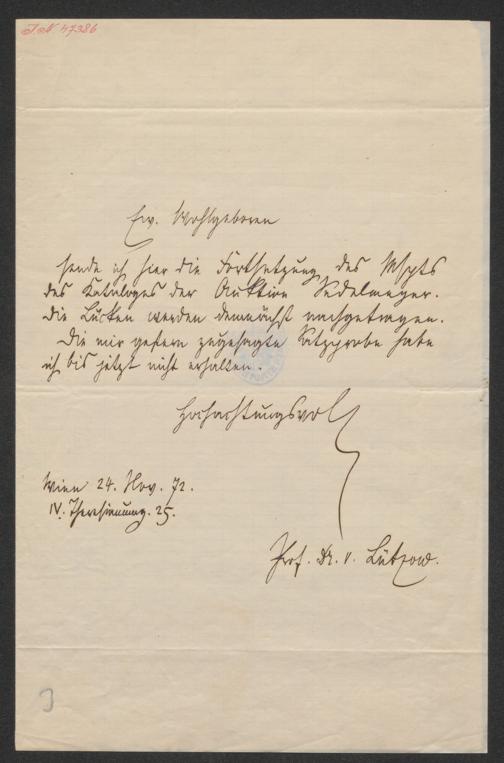 I.N 47386
Ew. Wohlgeboren
sende ich hier die Fortsetzung des Mspts
des Kataloges der Auktion Sedelmeyer.
Die Lücken werden demnächst nachgetragen.
Die mir gestern zugesagte Satzprobe habe
ich bis jetzt nicht erhalten.
Hochachtungsvoll
Wien 24. Nov. 72.
IV. Theresianumg. 25.
Prof. Dr. v. Lützow.